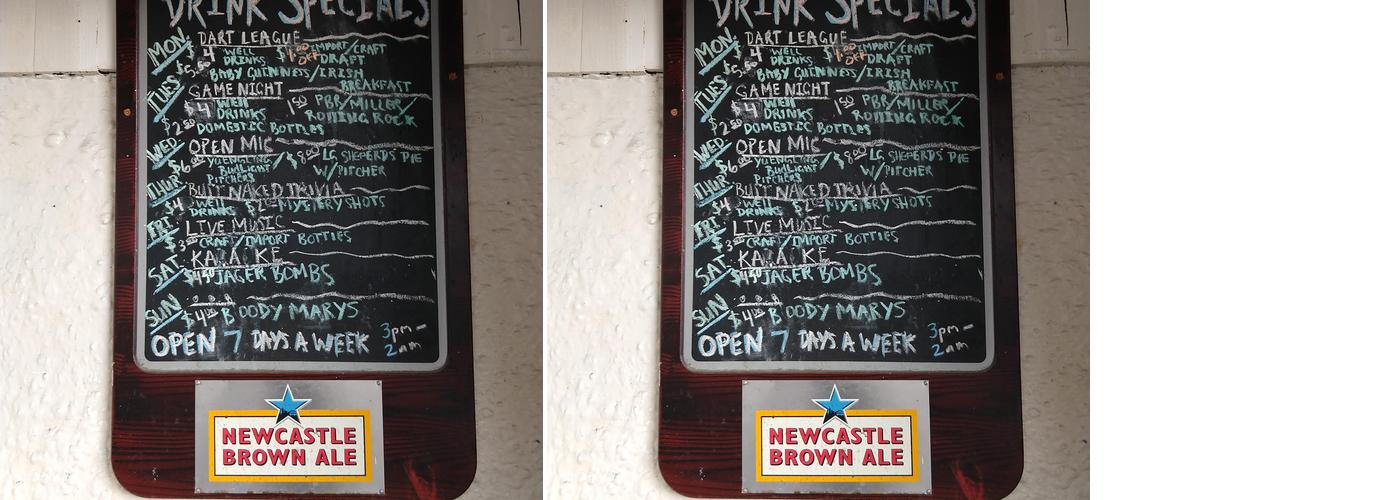 DRINK SPECIALS
MON. DART LEAGUE
$4 WELL DRINKS $1.00 OFF IMPORT/CRAFT DRAFT
$5.50 BABY GUINNESS/IRISH BREAKFAST
TUES GAME NIGHT
$4 WELL DRINKS 1.50 PBR/MILLER/ ROLLING ROCK
$2.50 DOMESTIC BOTTLES
WED. OPEN MIC
$6.00 YUENGLING/ BUDLIGHT PITCHERS $8.00 LG SHEPERDS PIE W/PITCHER
THUR BUTT NAKED TRIVIA
$4 WELL DRINKS $2.00 MYSTERY SHOTS
FRI LIVE MUSIC
$3 CRAFT/IMPORT BOTTLES
SAT. KA A KE
$4.50 JAGER BOMBS
SUN
$4.00 B OODY MARYS
OPEN 7 DAYS A WEEK 3pm - 2am
NEWCASTLE
BROWN ALE
DRINK SPECIALS
MON. DART LEAGUE
$4 WELL DRINKS $1.00 OFF IMPORT/CRAFT DRAFT
$5.50 BABY GUINNESS/IRISH BREAKFAST
TUES GAME NIGHT
$4 WELL DRINKS 1.50 PBR/MILLER/ ROLLING ROCK
$2.50 DOMESTIC BOTTLES
WED. OPEN MIC
$6.00 YUENGLING/ BUDLIGHT PITCHERS $8.00 LG SHEPERDS PIE W/PITCHER
THUR BUTT NAKED TRIVIA
$4 WELL DRINKS $2.00 MYSTERY SHOTS
FRI LIVE MUSIC
$3 CRAFT/IMPORT BOTTLES
SAT. KA A KE
$4.50 JAGER BOMBS
SUN
$4.00 B OODY MARYS
OPEN 7 DAYS A WEEK 3pm - 2am
NEWCASTLE
BROWN ALE